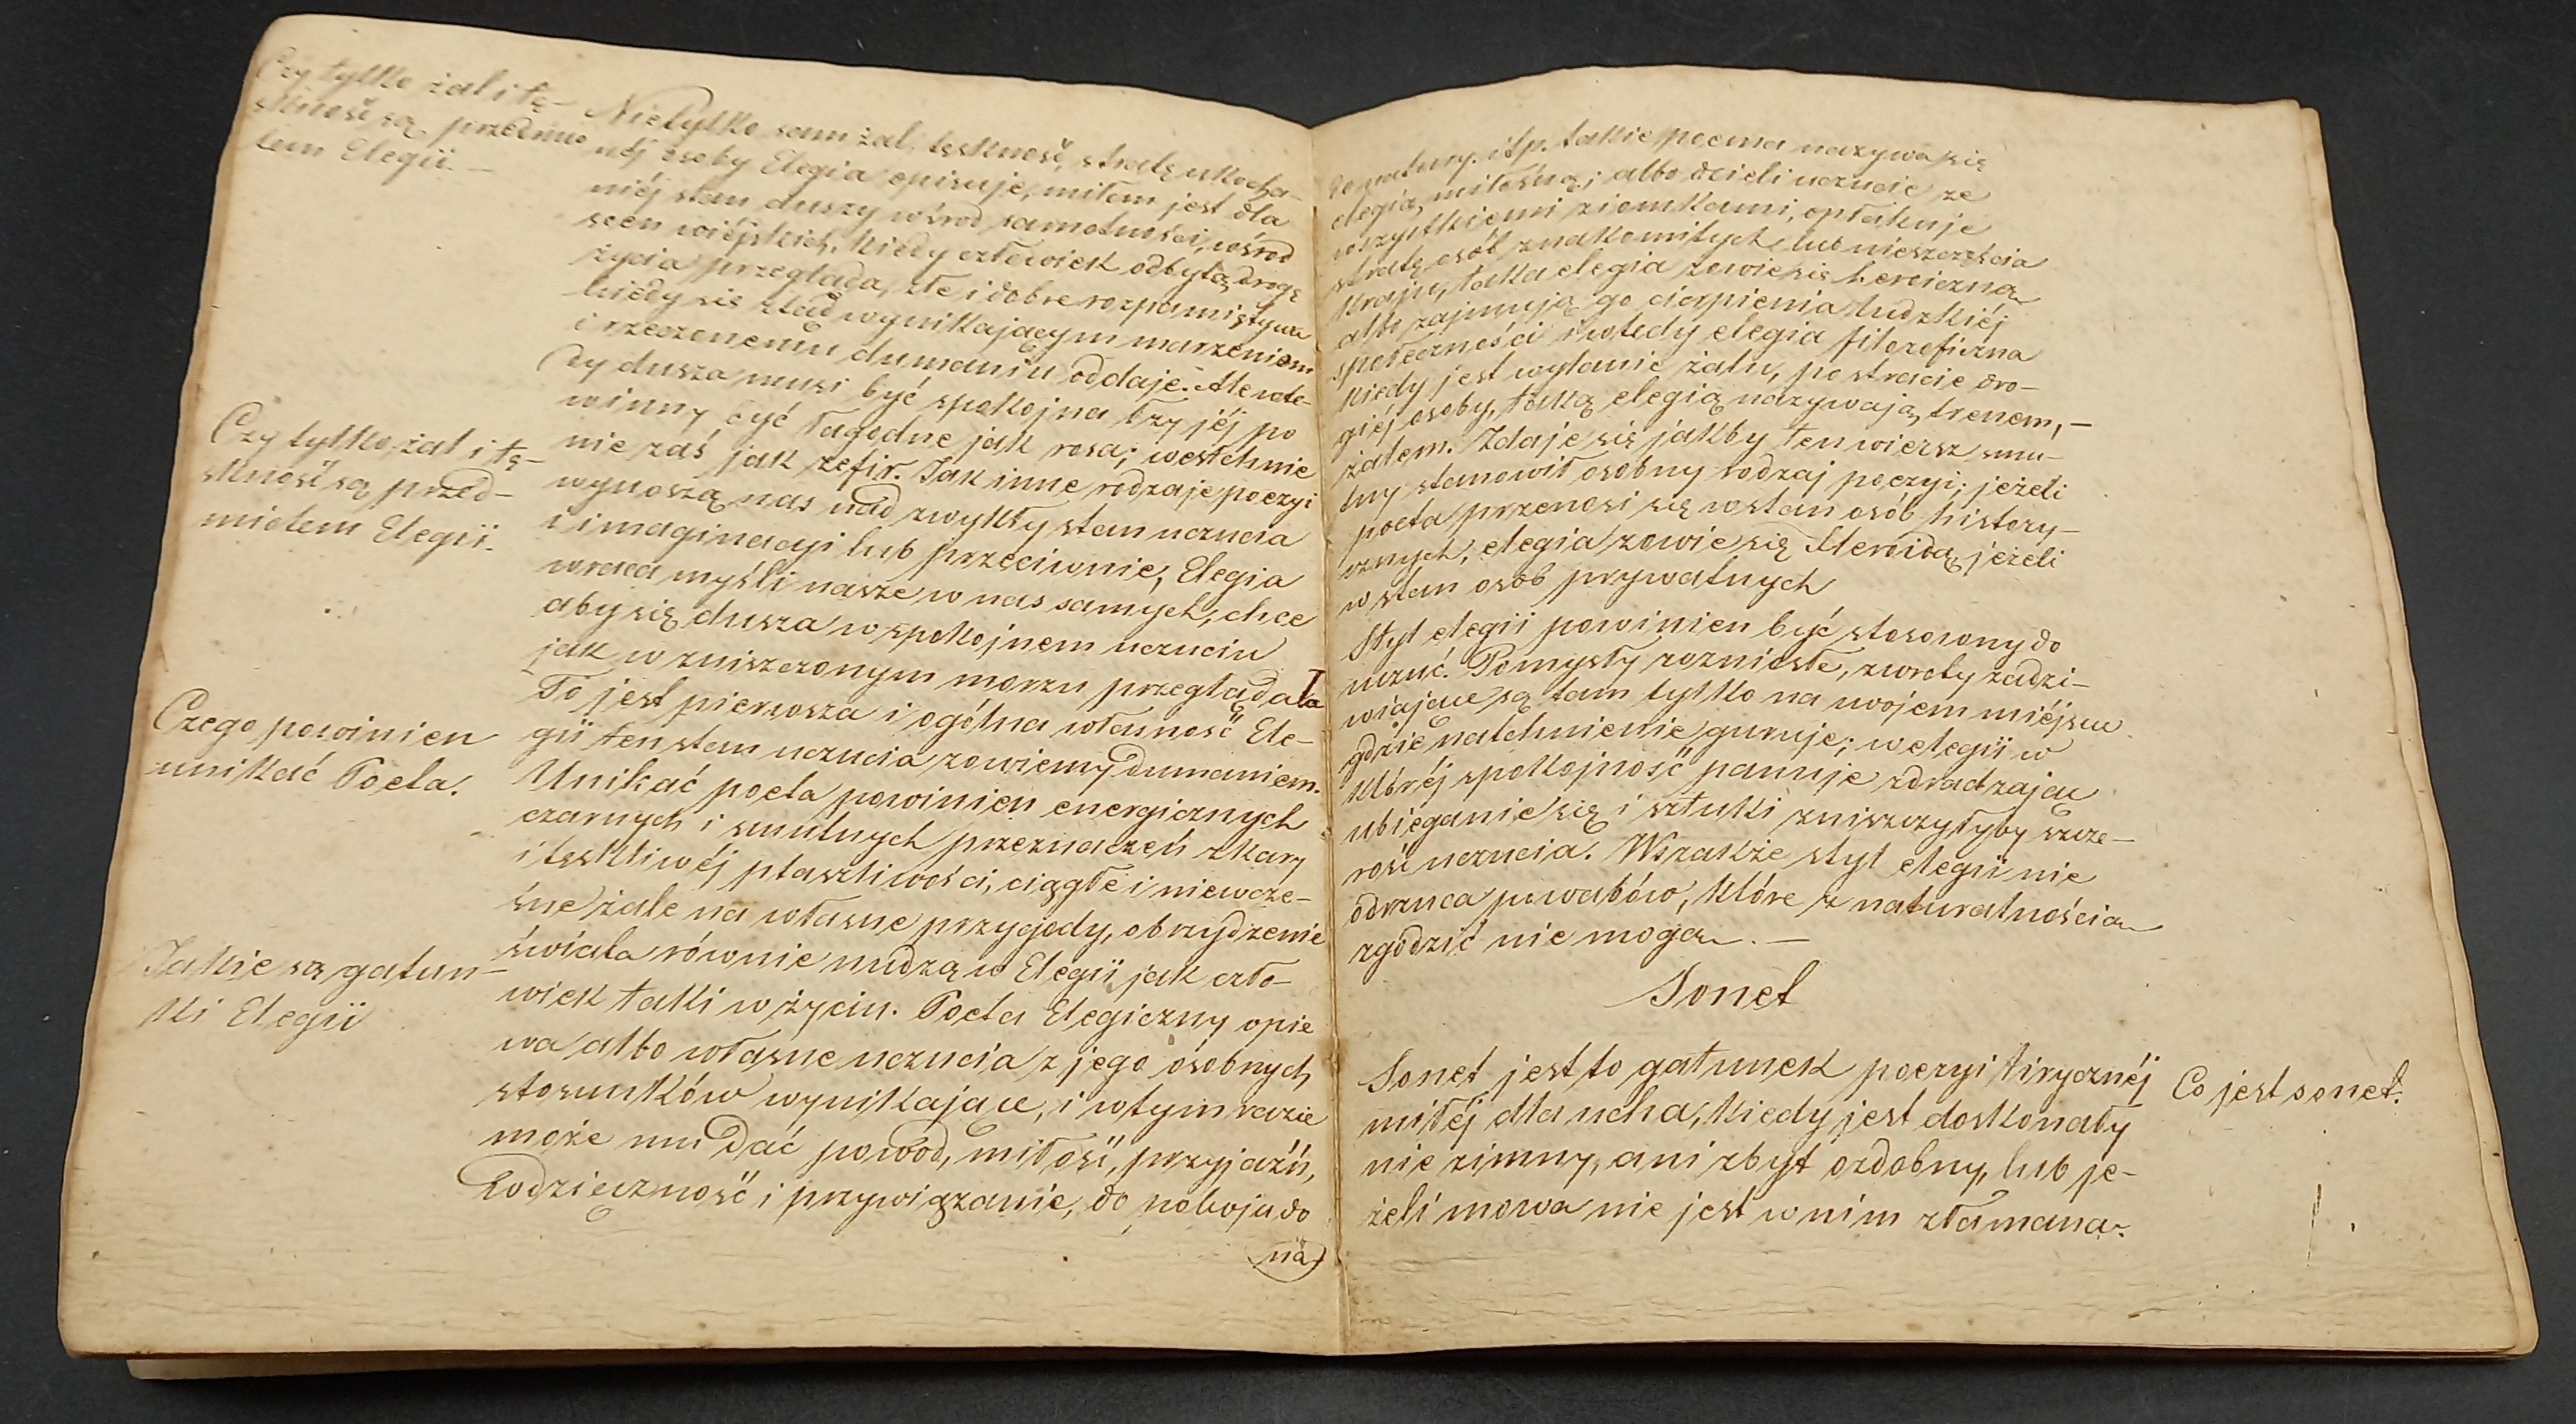 Czy tylko żal i tę-
skność są przedmio
tem Elegii. —
Nietylko sam żal, tęskność, stratę ukocha-
néj osoby Elegia opisuje, miłem jest dla
niéj stan duszy wśrod samotności, wśrod
scen wiéjskich, kiedy człowiek odbytą drogę
życia przegląda, złe i dobre rozpamiętywa
kiedy się ztąd wynikającym marzeniom
i rzeczonemu dumaniu oddaje. Ale wte-
dy dusza musi być spokojna łzy jéj po
winny być łagodne jak rosa; westchnie
nie zaś jak zefir. Jak inne rodzaje poezyi
wynoszą nas nad zwykły stan uczucia
i imaginacyi lub przeciwnie, Elegia
wraca myśli nasze w nas samych, chce
aby się dusza w spokojnem uczuciu
jak w zniszczonym morzu przeglądała
To jest pierwsza i ogólna własność Ele-
gii ten stan uczucia zowiemy dumaniem.
Czy tylko żal i tę-
skność są przed-
miotem Elegii.
Czego powinien
unikać Poeta.
Unikać poeta powinien energicznych
czarnych i smutnych przeznaczeń z kary
i tęskliwéj płaszliwości, ciągłe i niewcze-
śne żale na własne przygody, obrzydzenie
świata równie nudzą w Elegii jak czło-
wiek taki w życiu. Poeta Elegiczny opie
wa albo własne uczucia z jego osobnych
stosunków wynikające, i w tym razie
może mu dać powód, miłość, przyjaźń,
Wdzięczność i przywiązanie, do pokoju do
na
Jakie są gatun-
ki Elegii
do natury. itp. takie poema nazywa się
elegią miłosną; albo dzieli uczucie ze
wszystkiemi ziomkami, opłakuje
stratę osób znakomitych lub nieszczęścia
kraju, taka elegia zowie się heroiczną
albo zajmują go cierpienia ludzkiéj
społeczności i wtedy elegia filozoficzna
kiedy jest wylanie żalu, po stracie dro-
giéj osoby, taką elegią nazywają trenem, —
żalem. Zdaje się jakby ten wiersz smu-
tny stanowił osobny rodzaj poezyi; jeżeli
poeta przenosi się w stan osób history-
cznych, elegia zowie się Heroidą, jeżeli
w stan osób prywatnych
Styl elegii powinien być stosowny do
uczuć. Pomysły rozniosłe, zwroty zadzi-
wiające są tam tylko na swojem miéjscu
gdzie natchnienie guruje; w elegii w
któréj spokojność panuje zdradzające
ubieganie się i sztuki zniszczyłyby szcze-
rość uczucia. Wszakże styl elegii nie
odrzuca powabów, które z naturalnością
zgodzić nie mogą. —
Sonet
Sonet jest to gatunek poezyi lirycznéj
miłéj dla ucha, kiedy jest doskonały
nie zimny, ani zbyt ozdobny, lub je-
żeli mowa nie jest w nim złamana.
Co jest sonet.